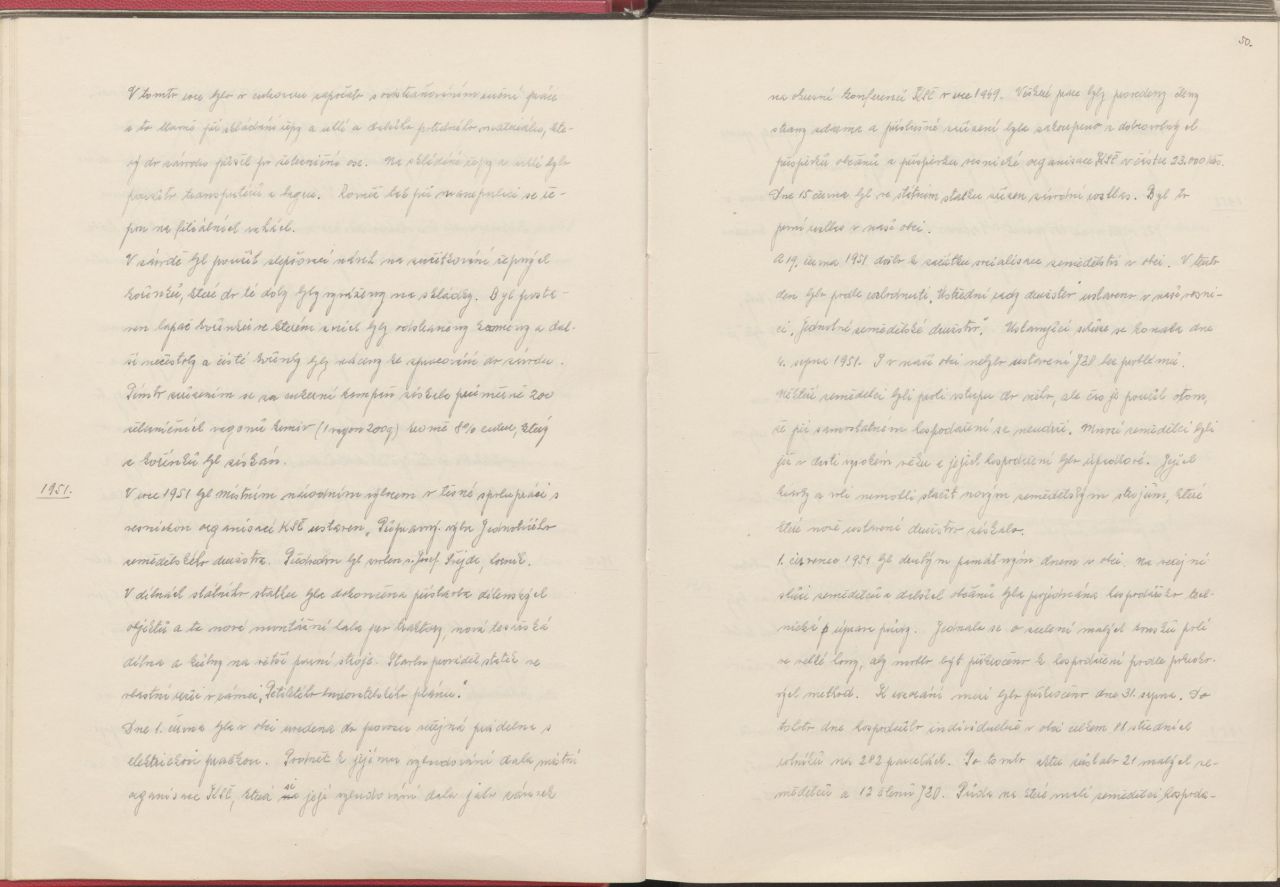 V tomto roce bylo v cukrovaru započato s odstraňováním ruční práce
a to hlavně při skládání řepy a uhlí a dalšího potřebného materiálu, kte-
rý do závodu přišel po železniční ose. Na skládání řepy a uhlí bylo
použito transportérů a bagru. Rovněž tak při manipulaci se ře-
pou na filiálních vahách.
V závodě byl použit zlepšovací návrh na zužitkování řepných
kořínků, které do té doby byly vyváženy na skládky. Byl posta-
ven lapač kořínků ve kterém z nich byly odstraněny kameny a dal-
ší nečistoty a čisté kořínky byly vráceny ke zpracování do závodu.
Tímto zařízením se za cukerní kampaň získalo průměrně 200
vagonů krmiv (1 vagon 200q) kromě 8% cukru, který
z kořínků byl získán.
1951.
V roce 1951 byl místním národním výborem v těsné spolupráci s
vesnickou organisací KSČ ustaven „Přípravný výbor Jednotného
zemědělského družstva. Předsedou byl zvolen s. Josef Šejda, horník.
V dílnách státního statku byla dokončena přístavba dílenských
objektů a to nové montážní haly pro traktory, nová tesařská
dílna a kůlny na větší polní stroje. Stavbu prováděl statek ve
vlastní režii v rámci „Pětiletého investičního plánu."
Dne 1. června byla v obci uvedena do provozu veřejná prádelna s
elektrickou pračkou. Podnět k jejímu vybudování dala místní
organisace KSČ, která si její vybudování dala jako závazek
50.
na okresní konferenci KSČ v roce 1949. Veškeré práce byly provedeny členy
strany zdarma a příslušné zařízení bylo zakoupeno z dobrovolných
příspěvků občanů a příspěvku vesnické organisace KSČ v částce 23.000 kčs.
Dne 15 června byl ve státním statku zřízen závodní rozhlas. Byl to
první rozhlas v naší obci.
A 19. června 1951 došlo k začátku socialisace zemědělství v obci. V tento
den bylo podle rozhodnutí „Ustřední rady družstev" ustaveno v naší vesni-
ci „Jednotné zemědělské družstvo". Ustavující schůze se konala dne
4. srpna 1951. I v naší obci nebylo ustavení JZD bez problémů.
Někteří zemědělci byli proti vstupu do něho, ale čas je poučil o tom,
že při samostatném hospodaření se neudrží. Mnozí zemědělci byli
již v dosti vysokém věku a jejich hospodaření bylo úpadkové. Jejich
krávy a voli nemohli stačit novým zemědělským strojům, které
které nově ustavené družstvo získalo.
1. červenec 1951 byl druhým památným dnem v obci. Na veřejné
schůzi zemědělců a dalších občanů byla projednána hospodářsko tech-
nická úprava půdy. Jednalo se o scelení malých kousků polí
ve velké lány, aby mohlo být přikročeno k hospodaření podle pokroko-
vých method. K rozorání mezí bylo přikročeno dne 31. srpna. Do
tohoto dne hospodařilo individuelně v obci celkem 81 středních
rolníků na 282 parcelách. Po tomto aktu zůstalo 21 malých ze-
mědělců a 12 členů JZD. Půda na které malí zemědělci hospoda-